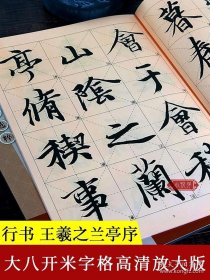 暮春
會于會
山陰之蘭
亭脩禊事
行书 王羲之兰亭序
大八开米字格高清放大版